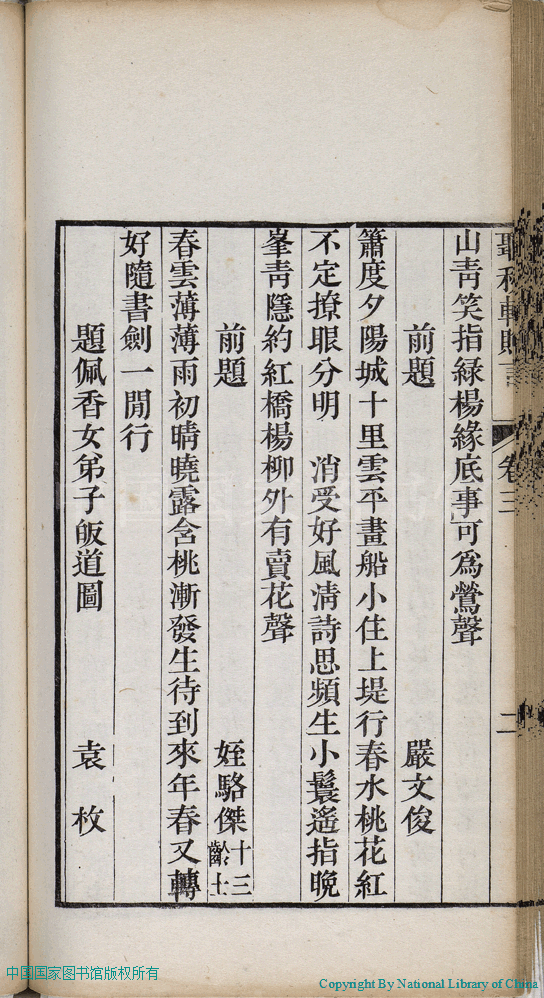 聽秋軒贈言 卷三 二
山靑笑指綠楊緣底事可爲鶯聲
前題 嚴文俊
簫度夕陽城十里雲平畫船小住上堤行春水桃花紅
不定撩眼分明 消受好風淸詩思頻生小鬟遙指晚
峯靑隱約紅橋楊柳外有賣花聲
前題 姪駱傑 十三齡士
春雲薄薄雨初晴曉露含桃漸發生待到來年春又轉
好隨書劍一閒行
題佩香女弟子皈道圖 袁枚
中国国家图书馆版权所有
Copyright By National Library of China